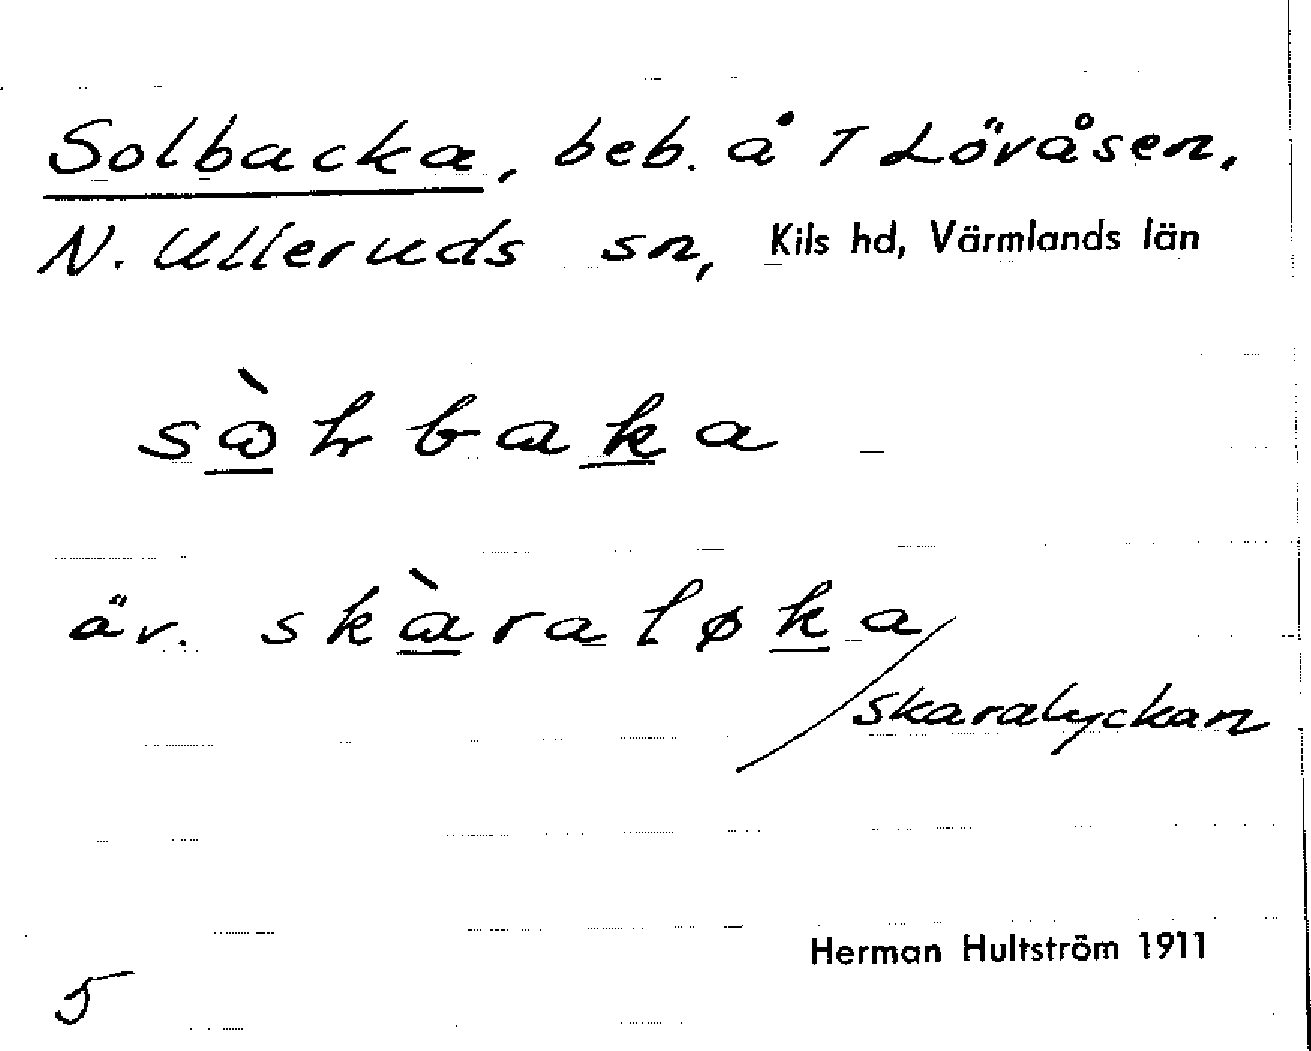 Solbacka, beb. å 1 Lövåsen,
N. Ulleruds sn, Kils hd, Värmlands län
sɷ̀ɫbaka
äv. skàraløka
/skaralyckan
Herman Hultström 1911
5